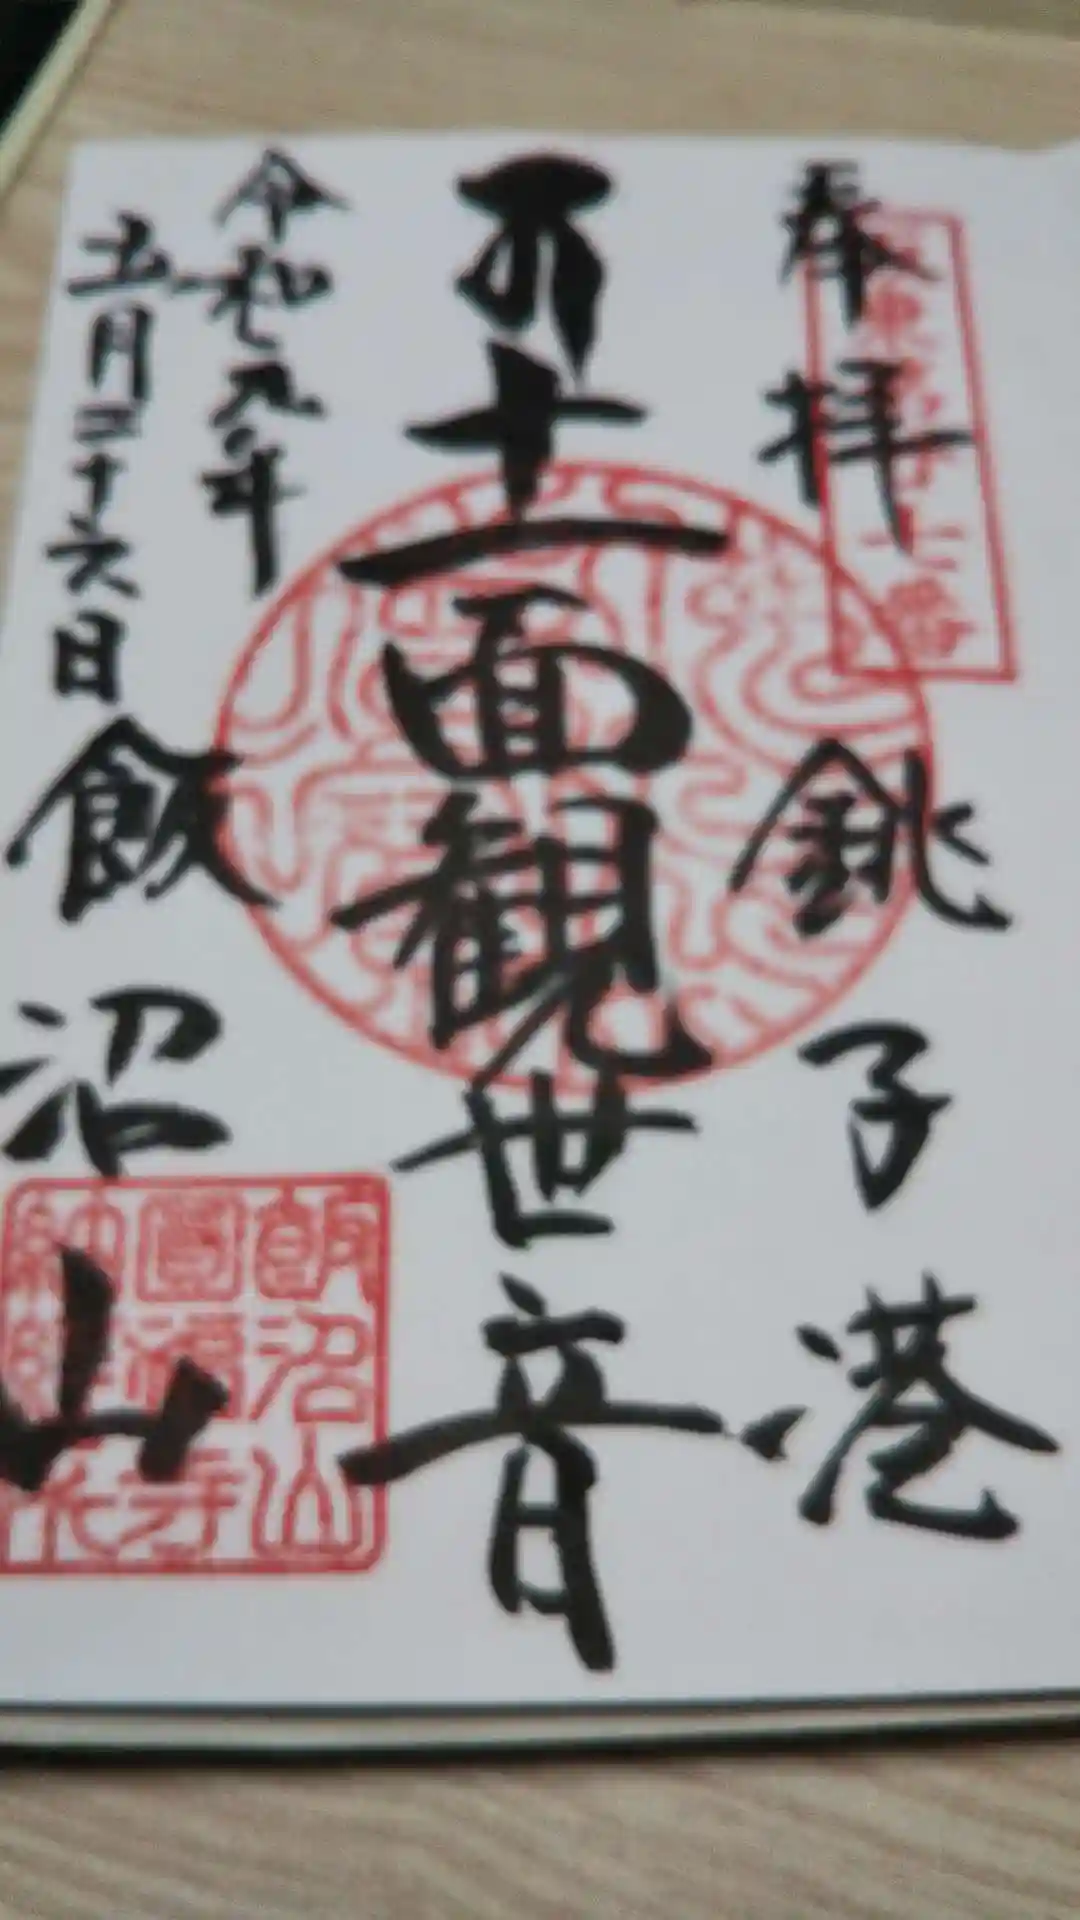 奉拝
坂東第二十七番
銚子港
十一面観世音
令和元年
五月二十六日
飯沼山
飯沼山
圓福寺
納経所